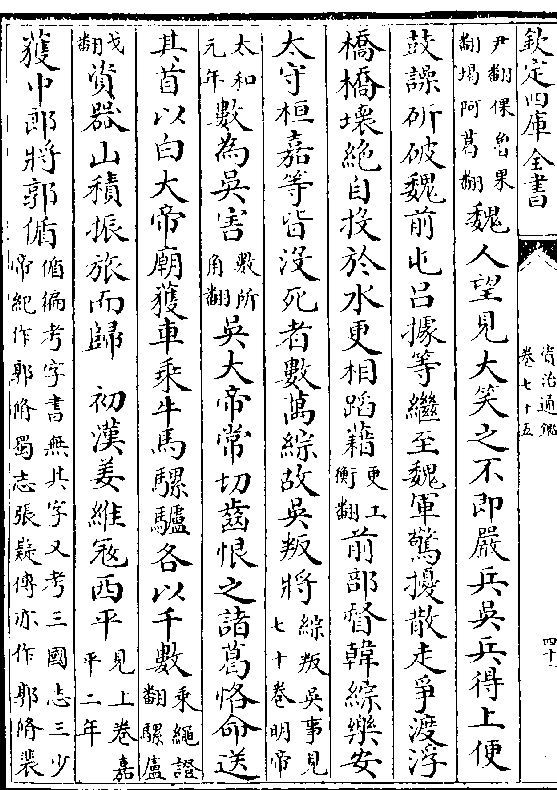 欽定四庫全書
資治通鑑
卷七十五
四十
尹翻倮魯果
翻堨阿葛翻
魏人望見大笑之不即嚴兵吳兵得上便
鼓譟斫破魏前屯吕據等繼至魏軍驚擾散走爭渡浮
橋橋壞絶自投於水更相蹈藉
更工
衡翻
前部督韓綜樂安
太守桓嘉等皆没死者數萬綜故吳叛將
綜叛吳事見
七十卷明帝
太和
元年
數為吳害
數所
角翻
吳大帝常切齒恨之諸葛恪命送
其首以白大帝廟獲車乘牛馬騾驢各以千數
乘繩證
翻騾盧
戈
翻
資器山積振旅而歸 初漢姜維寇西平
見上卷嘉
平二年
獲中郎將郭偱
偱徧考字書無其字又考三國志三少
帝紀作郭脩蜀志張嶷傳亦作郭脩裴